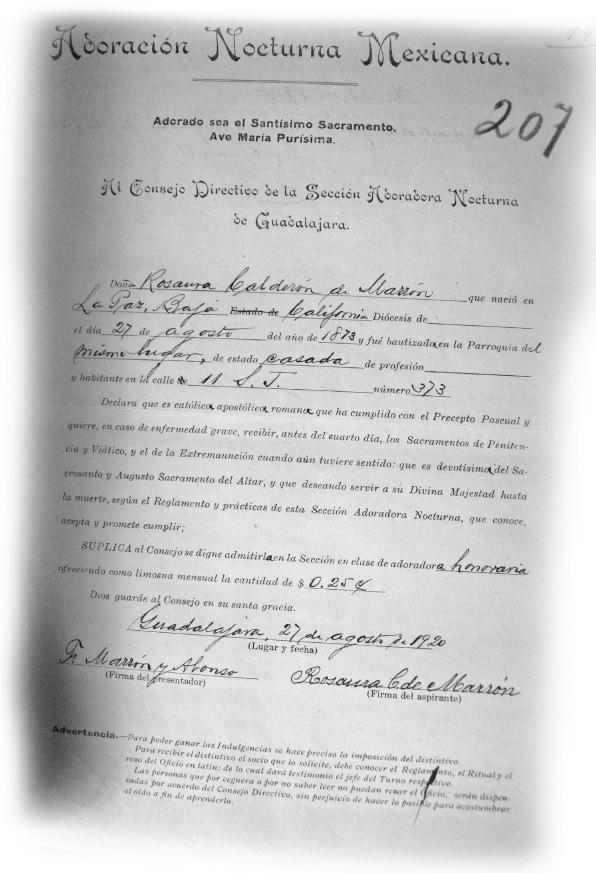 Adoración Nocturna Mexicana.
207
Adorado sea el Santísimo Sacramento.
Ave María Purísima.
Al Consejo Directivo de la Sección Adoradora Nocturna
de Guadalajara.
Doña Rosaura Calderón de Marrón que nació en
La Paz, Baja Estado de California Diócesis de
el día 27 de agosto del año de 1873 y fué bautizada en la Parroquia del
mismo lugar, de estado casada de profesión
y habitante en la calle 11 S. J. número 373
Declara que es católica apostólica romana que ha cumplido con el Precepto Pascual y
quiere, en caso de enfermedad grave, recibir, antes del cuarto día, los Sacramentos de Peniten-
cia y Viático, y el de la Extremaunción cuando aún tuviere sentido: que es devotísima del Sa-
crosanto y Augusto Sacramento del Altar, y que deseando servir a su Divina Majestad hasta
la muerte, según el Reglamento y prácticas de esta Sección Adoradora Nocturna, que conoce,
acepta y promete cumplir;
SUPLICA al Consejo se digne admitirla en la Sección en clase de adoradora honoraria
ofreciendo como limosna mensual la cantidad de $ 0.25 ¢
Dios guarde al Consejo en su santa gracia.
Guadalajara, 27 de agosto de 1920
(Lugar y fecha)
F. Marrón y Alonso
(Firma del presentador)
Rosaura C. de Marrón
(Firma del aspirante)
Advertencia.—Para poder ganar las Indulgencias se hace preciso la imposición del distintivo.
Para recibir el distintivo el socio que lo solicite, debe conocer el Reglamento, el Ritual y el
rezo del Oficio en latín: de lo cual dará testimonio el jefe del Turno respectivo.
Las personas que por ceguera o por no saber leer no puedan rezar el Oficio, serán dispen-
sadas por acuerdo del Consejo Directivo, sin perjuicio de hacer lo posible para acostumbrar
el oído a fin de aprenderlo.